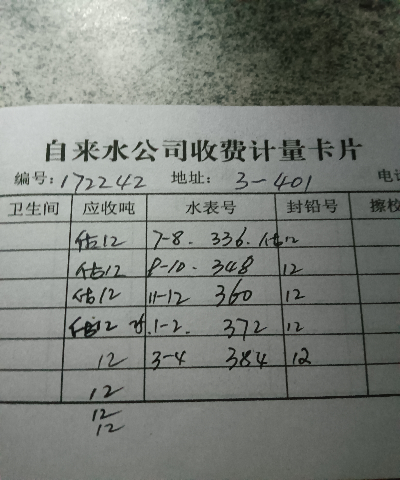 自来水公司收费计量卡片
编号: 172242 地址: 3-401 电
卫生间 应收吨 水表号 封铅号 擦校
估12 7-8. 336. 估12
估12 8-10. 348 12
估12 11-12 360 12
12 1-2. 372 12
12 3-4 384 12
12
12
12